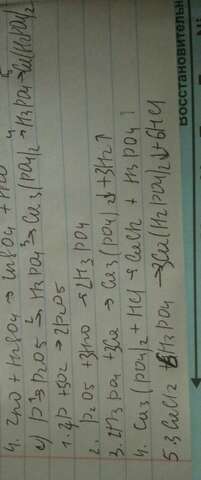 4. ZnO + H2SO4 → ZnSO4 + H2O
c) P → P2O5 → H3PO4 → Ca3(PO4)2 → H3PO4 → Ca(H2PO4)2
1. 4P + 5O2 → 2P2O5
2. P2O5 + 3H2O → 2H3PO4
3. 2H3PO4 + 3Ca → Ca3(PO4)2↓ + 3H2↑
4. Ca3(PO4)2 + HCl → CaCl2 + H3PO4
5. 3CaCl2 + 6H3PO4 → 3Ca(H2PO4)2↓ + 6HCl
восстановитель